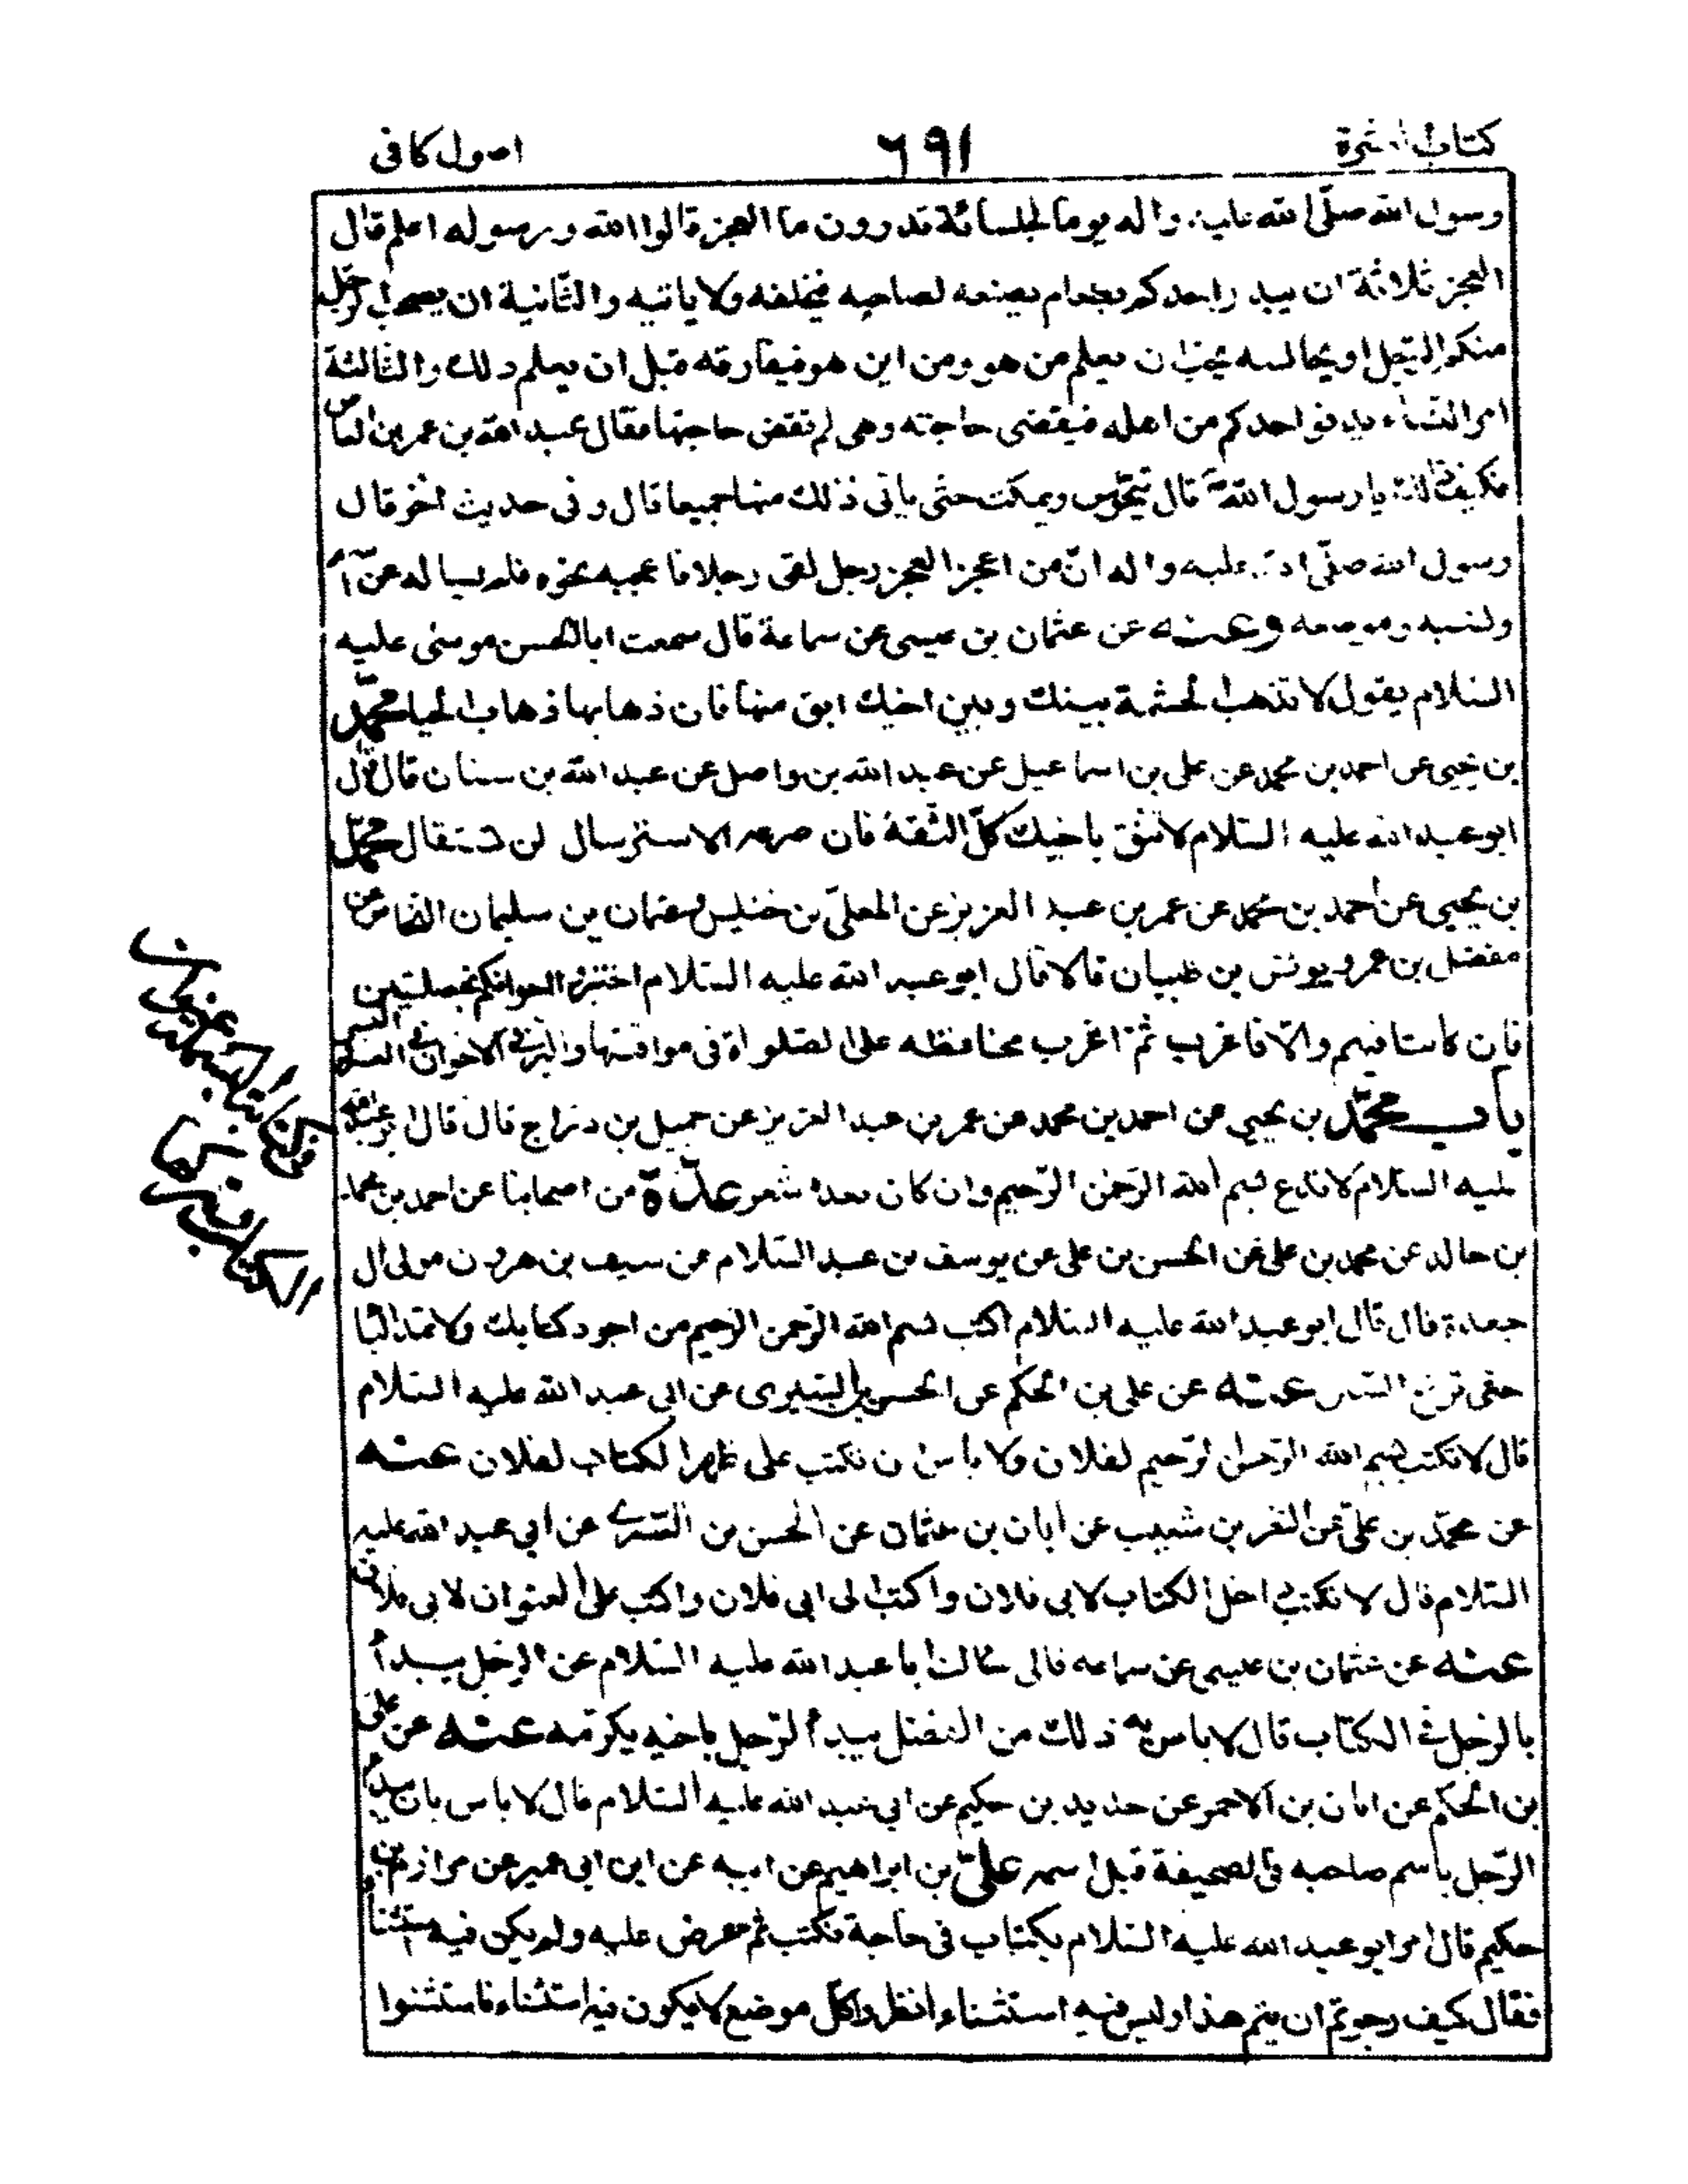 كتاب العشرة
٦٩١
اصول كافى
رسول الله صلّى الله عليه واله يوما لجلسائه تدرون ما العجز قالوا الله ورسوله اعلم قال
العجز ثلاثة ان يبدر احدكم بطعام يصنعه لصاحبه فيخلفه ولا ياتيه والثّانية ان يصحب الرّجل
منكم الرّجل او يجالسه يحبّ ان يعلم من هو ومن اين هو فيفارقه قبل ان يعلم ذلك والثّالثة
امر النّساء يدنو احدكم من اهله فيقضى حاجته وهى لم تقض حاجتها فقال عبد الله بن عمر بن العاص
فكيف ذلك يا رسول الله قال يتحوّس ويمكث حتّى ياتى ذلك منها جميعا قال و فى حديث اخر قال
رسول الله صلّى الله عليه واله انّ من اعجز العجز رجل لقى رجلا فاعجبه نحوه فلم يساله عن
ولنسبه وموضعه وعنه عن عثمان بن عيسى عن سماعة قال سمعت ابا الحسن موسى عليه
السّلام يقول لا تذهب الحشمة بينك وبين اخيك ابق منها فان ذهابها ذهاب الحيا محمّد
بن يحيى عن احمد بن محمد عن على بن اسماعيل عن عبد الله بن واصل عن عبد الله بن سنان قال قال
ابو عبد الله عليه السّلام لا تثق باخيك كلّ الثّقة فان صرعه الاسترسال لن تستقال محمّد
بن يحيى عن احمد بن محمد عن عمر بن عبد العزيز عن المعلّى بن خنيس وعثمان بن سليمان النخاس عن
مفضل بن عمر ويونس بن ظبيان قالا قال ابو عبد الله عليه السّلام اختبروا اخوانكم بخصلتين
فان كانتا فيهم والّا فاعزب ثمّ اعزب محافظه على الصّلواة فى مواقيتها والبرّ فى الاخوان فى العسر
باب محمّد بن يحيى عن احمد بن محمد عن عمر بن عبد العزيز عن جميل بن دراج قال قال ابو عبد الله
عليه السّلام لا تدع بسم الله الرّحمن الرّحيم وان كان بعده شعر عدّة من اصحابنا عن احمد بن محمد
بن خالد عن محمد بن على عن الحسن بن على عن يوسف بن عبد السّلام عن سيف بن هرون مولى ال
جعدة قال قال ابو عبد الله عليه السّلام اكتب بسم الله الرّحمن الرّحيم من اجود كتابك ولا تمدّ البا
حتى ترفع السّين عنه عن على بن الحكم عن الحسن بن السّرى عن ابى عبد الله عليه السّلام
قال لا تكتب بسم الله الرّحمن الرّحيم لفلان ولا باس ان تكتب على ظهر الكتاب لفلان عنه
عن محمّد بن علىّ عن النضر بن شعيب عن ابان بن عثمان عن الحسن بن السّرى عن ابى عبد الله عليه
السّلام قال لا تكتب داخل الكتاب لابى فلان واكتب الى ابى فلان واكتب على العنوان لابى فلان
عنه عن عثمان بن عيسى عن سماعه قال سالت ابا عبد الله عليه السّلام عن الرّجل يبدأ
بالرّجل فى الكتاب قال لا باس به ذلك من الفضل يبدأ الرّجل باخيه يكرمه عنه عن على
بن الحكم عن ابان بن الاحمر عن حديد بن حكيم عن ابى عبد الله عليه السّلام قال لا باس بان يبدأ
الرّجل باسم صاحبه فى الصحيفة قبل اسمه علىّ بن ابراهيم عن ابيه عن ابن ابى عمير عن مرازم بن
حكيم قال امر ابو عبد الله عليه السّلام بكتاب فى حاجة فكتب ثم عرض عليه ولم يكن فيه استثناء
فقال كيف رجوتم ان يتم هذا وليس فيه استثناء انظروا كلّ موضع لا يكون فيه استثناء فاستثنوا